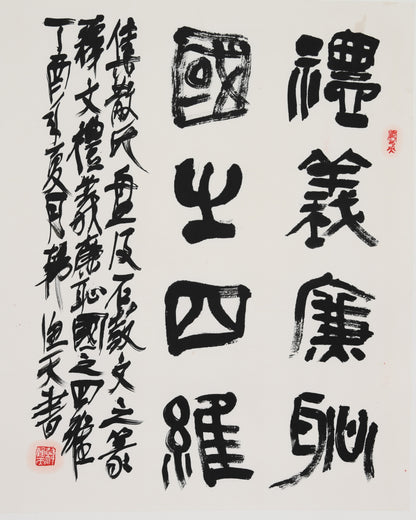 禮義廉恥
國之四維
集散氏盤及石鼓文之篆
釋文禮義廉恥國之四維
丁酉年夏月書